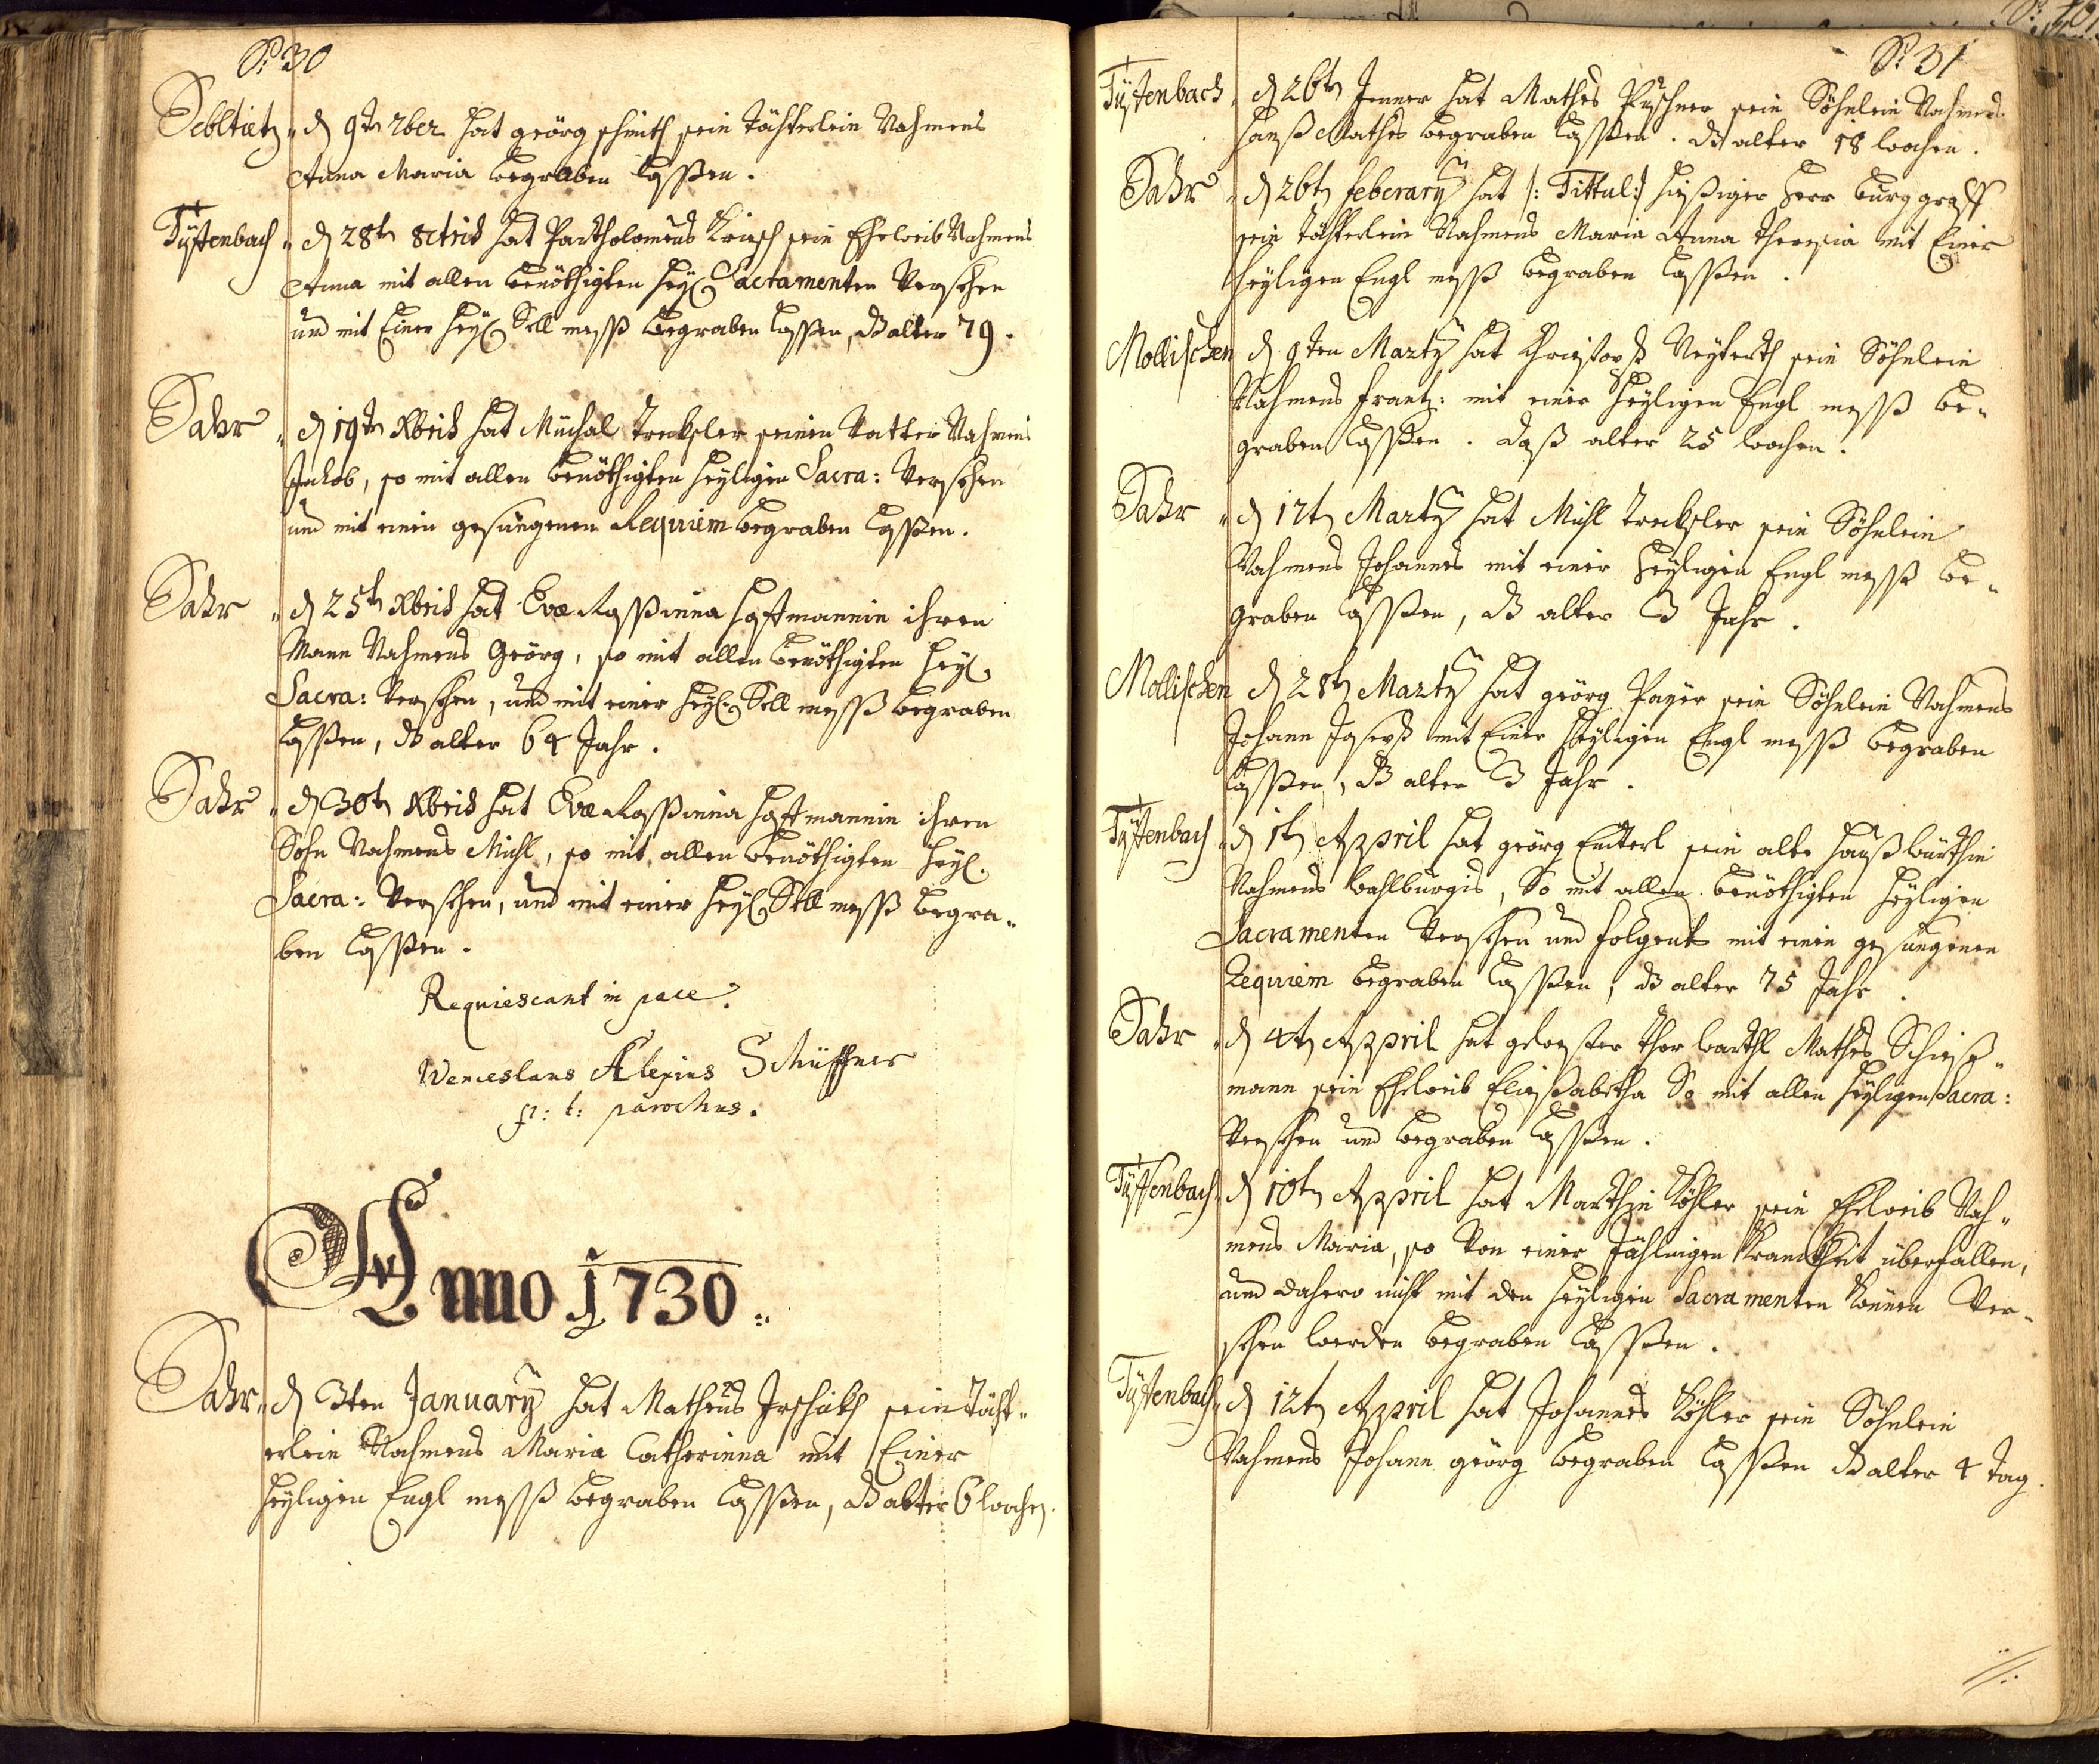 P: 30
Dobltietz „ d 9te 7ber hat geörg schmith sein töchterlein Nahmens
Anna Maria begraben lassen.
Tüffenbach „ d 28tn 8trid hat Partholomeus Kriesch sein Eheweib Nahmens
Anna mit allen benöthigten heyl Sacramenten Versehen
und mit Einer heyl Sell mess begraben lassen, dß alter 79.
Dahr „ d 19tn Xbrid hat Müchal Treksler seinen Vatter Nahmens
Jakob, so mit allen benöthigten heyligen Sacra: Versehen
und mit einen gesungenen Requiem begraben lassen.
Dahr „ d 25tn Xbrid hat Evæ Rossinna Hoffmannin ihren
Mann Nahmens Geörg, so mit allen benöthigten heyl
Sacra: Versehen, und mit einer heyl: Sell mess begraben
lassen, dß alter 64 Jahr.
Dahr „ d 30tn Xbrid hat Evæ Rossinna Hoffmannin ihren
Sohn Nahmens Michl, so mit allen benöthigten heyl.
Sacra: Versehen, und mit einer heyl Sell mess begra„
ben lassen.
Requiescant in pace.
Wenceslaus Alexius Schüffner
p: t: parochus.
Anno 1730.
Dahr „ d 3ten January hat Matheus sein töcht„
erlein Nahmens Maria Catherinna mit Einer
heyligen Engl mess begraben lassen, dß alter 6 wochen.
P: 31
Tüffenbach „ d 26tn Jenner hat Mathes Püschner sein Söhnlein Nahmens
Hanß Mathes begraben lassen. dß alter 18 wochen.
Dahr „ d 26tn feberary hat /: Tittul :/ hießiger Herr burggraff
sein töchterlein Nahmens Maria Anna Theresia mit Einer
heyligen Engl mess begraben lassen.
Mollischen d 9ten Marty hat Christoph Neyherth sein Söhnlein
Nahmens frantz: mit einer heyligen Engl mess be„
graben lassen. daß alter 25 wochen.
Dahr „ d 12tn Marty hat Michl Treksler sein Söhnlein
Nahmens Johannes mit einer heyligen Engl mess be„
graben lassen, dß alter 3 Jahr.
Mollischen d 28tn Marty hat geörg Payer sein Söhnlein Nahmens
Johann Joseph mit Einer heyligen Engl mess begraben
lassen, dß alter 3 Jahr.
Tüffenbach „ d 1tn Appril hat geörg Enterl sein alte haußwürthin
Nahmens Wahlburgis, So mit allen benöthigten heyligen
Sacramenten Versehen und folgents mit einen gesungenen
Requiem begraben lassen, dß alter 75 Jahr.
Dahr „ d 4tn Appril hat gewester thorwarthl Mathes Schieß„
mann sein Eheweib Eliessabetha So mit allen heyligen Sacra:
Versehen und begraben lassen.
Tüffenbach „ d 10tn Appril hat Marthin Köhler sein Eheweib Nah„
mens Maria, so Von einer Jählingen Kranckheit überfallen,
und dahero nicht mit den heyligen Sacramenten können Ver„
sehen werden begraben lassen.
Tüffenbach „ d 12tn Appril hat Johannes Köhler sein Söhnlein
Nahmens Johann geörg begraben lassen dß alter 4 tag.